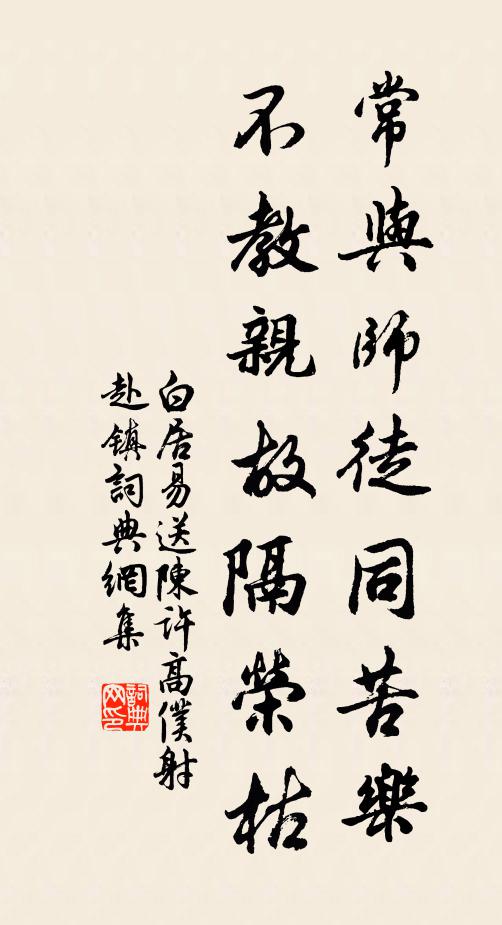 常與師徒同苦樂
不教親故隔榮枯
白居易送陳許高僕射
赴镇詞典網集
詞典
网印